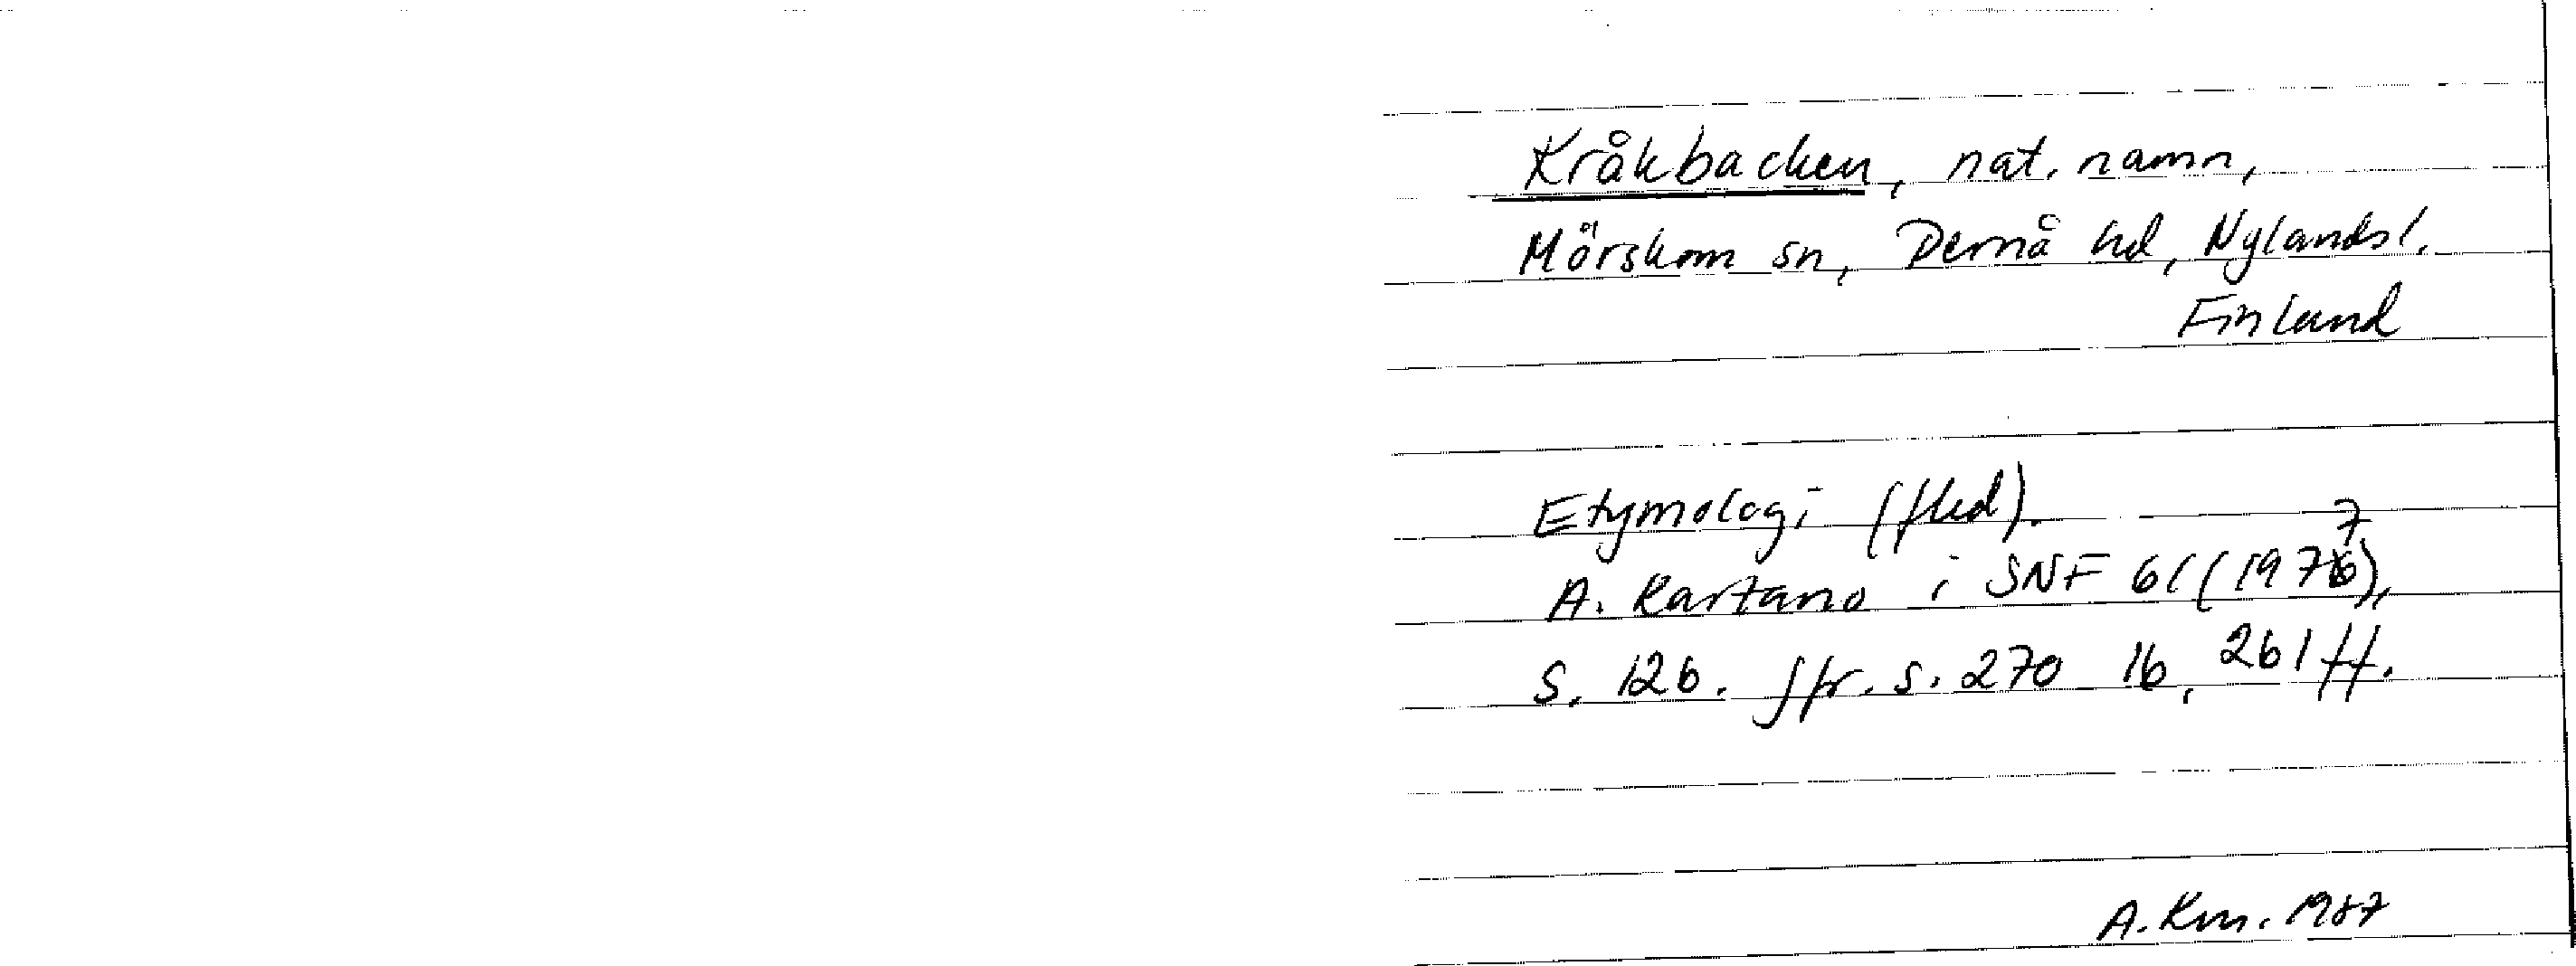 Kråkbacken, nat. namn,
Mörskom sn, Pernå hd, Nylandsl.
Finland
Etymologi (fled).
A. Kartano i SNF 61 (1977),
S. 126. Jfr. s. 270 16, 261 ff.
A. Km. 1987